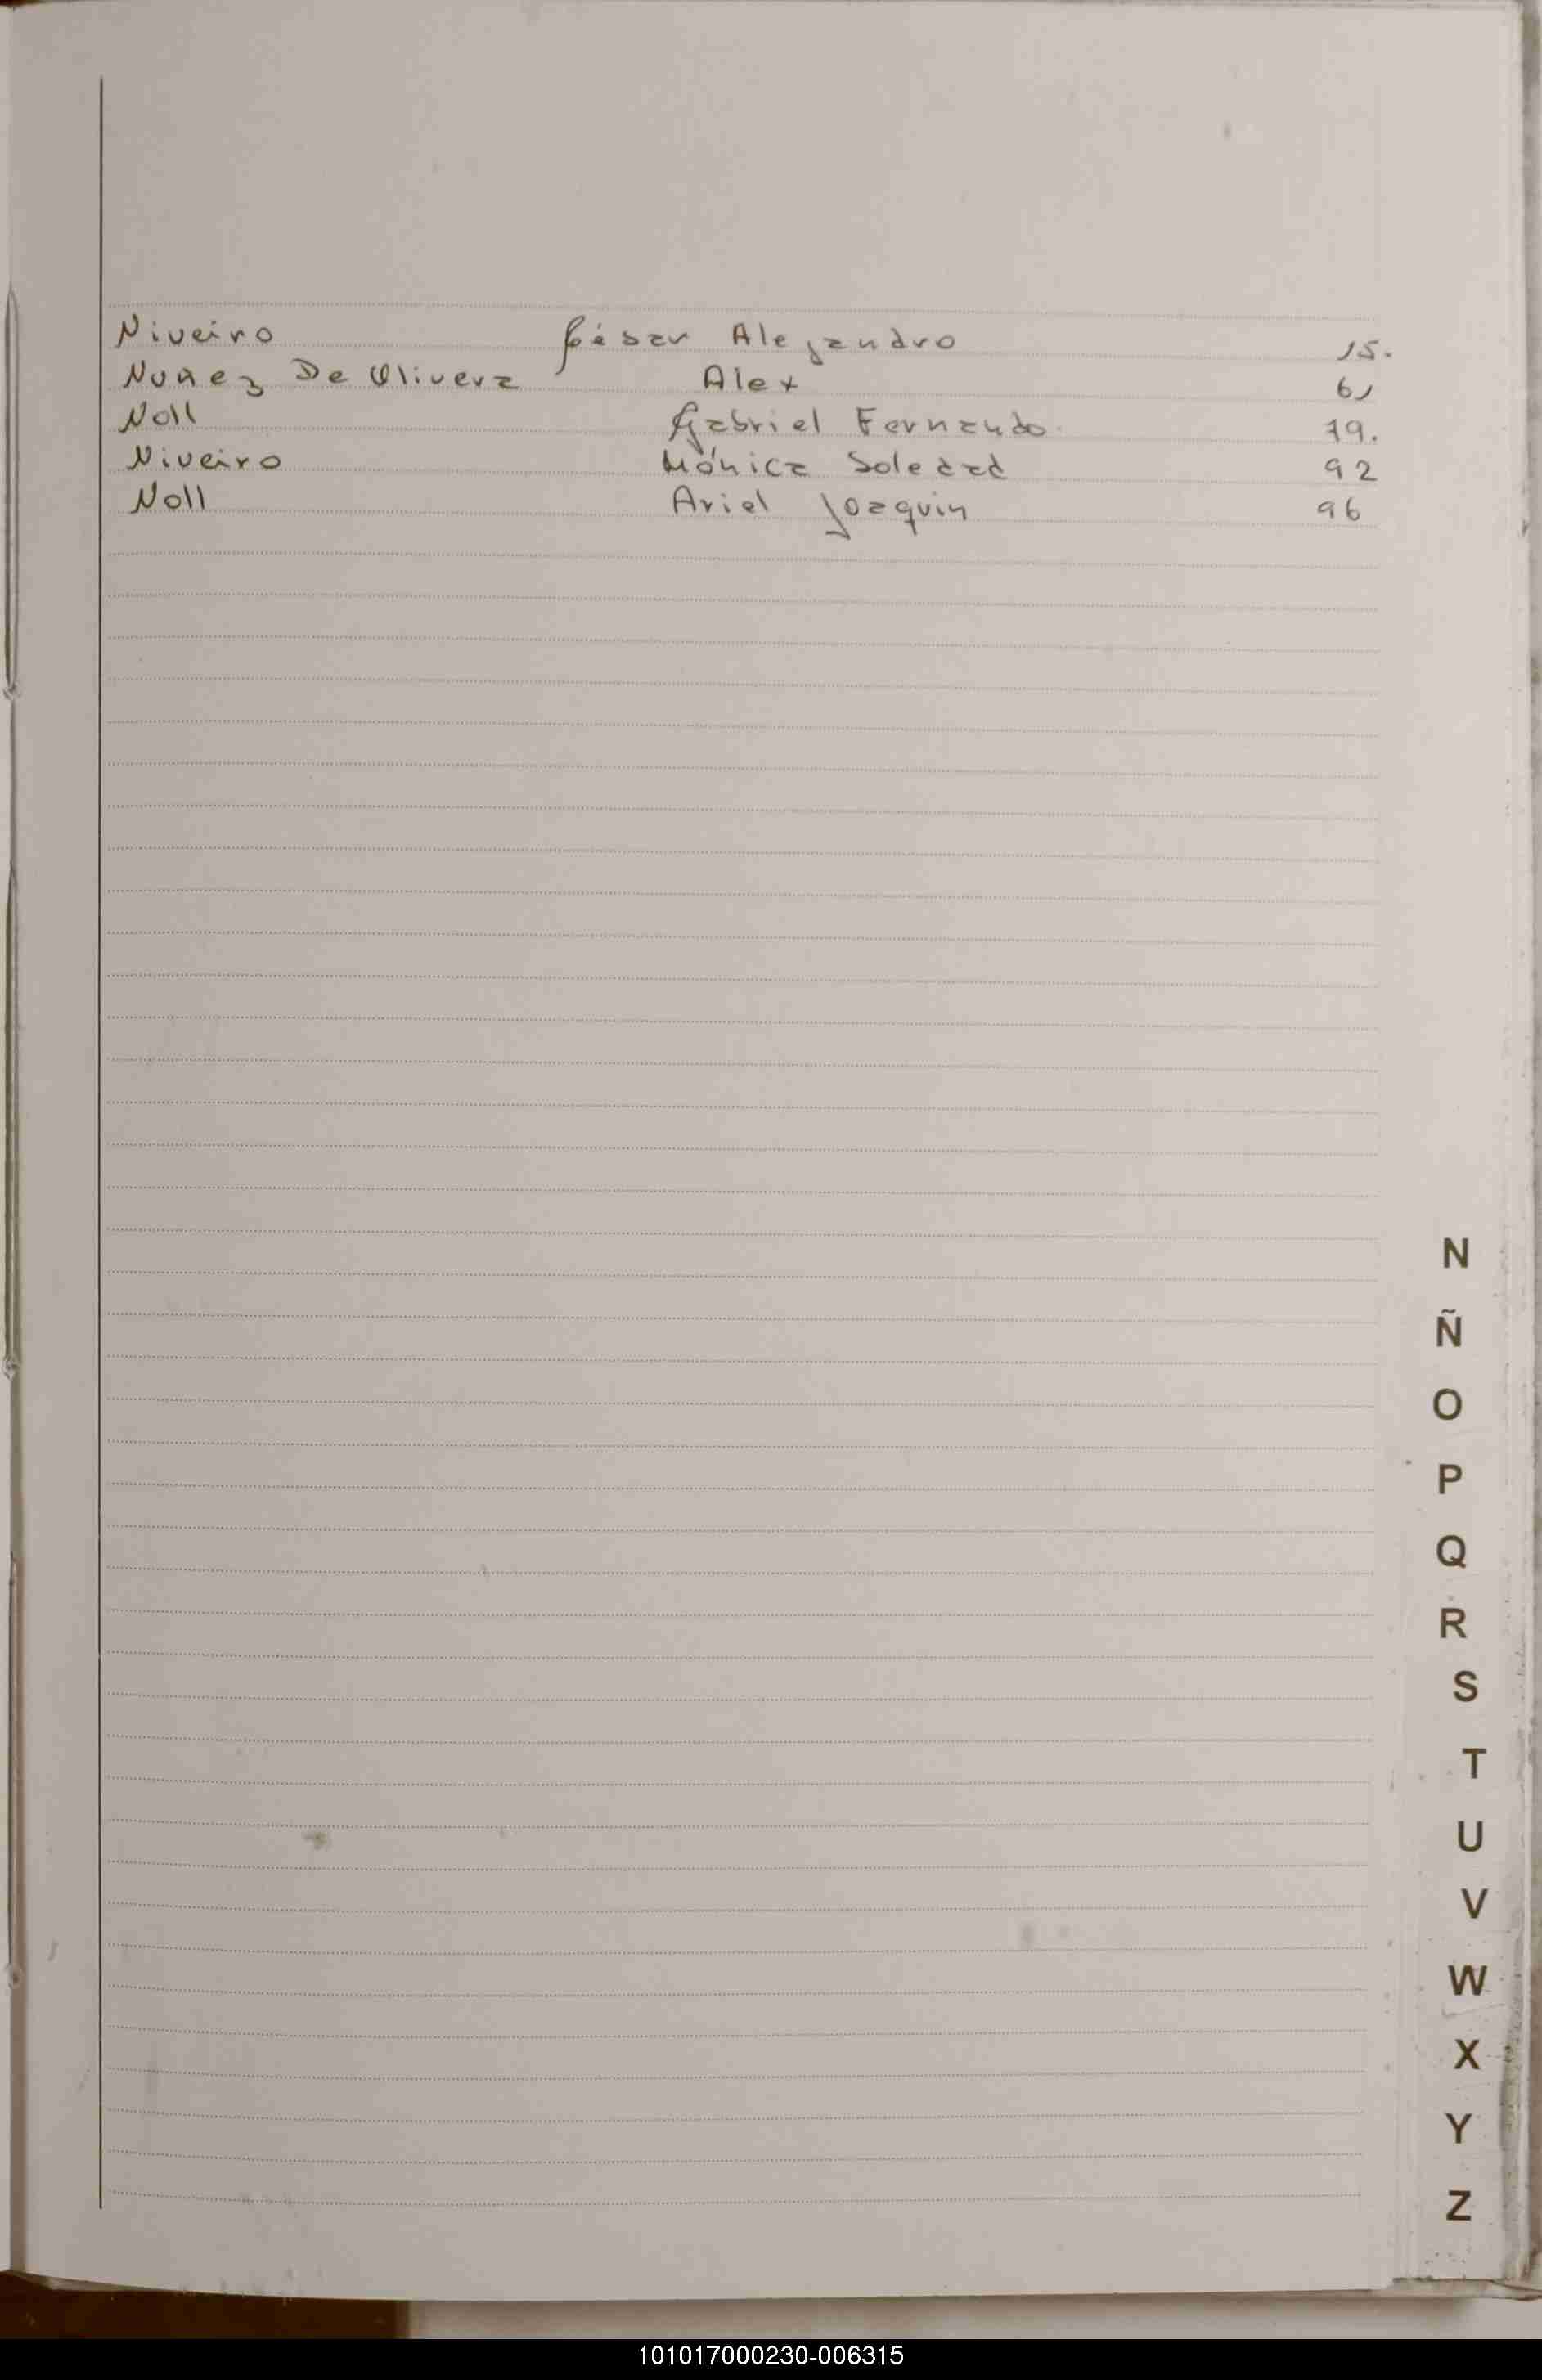 Niveiro César Alejandro 15.
Nunez De Olivera Alex 61
Noll Gabriel Fernando. 79.
Niveiro Mónica Soledad 92
Noll Ariel Joaquin 96
N
Ñ
O
P
Q
R
S
T
U
V
W
X
Y
Z
101017000230-006315